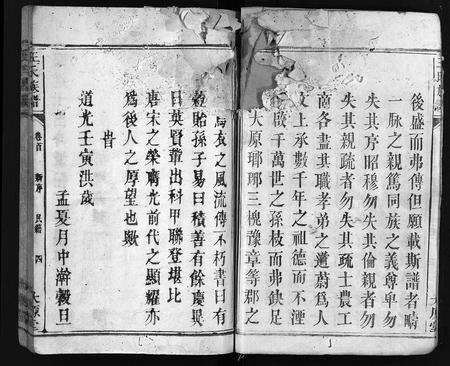 後盛而弗傳但願載斯譜者疇
一脉之親篤同族之義尊卑勿
失其序昭穆勿失其倫親者勿
失其親疏者勿失其疏士農工
商各盡其職孝弟之道蔚為人
文上承數千年之祖德而不湮
啟千萬世之孫枝而弗缺是
大原瑯琊三槐豫章等郡之
烏衣之風流傳不朽書曰有
穀貽孫子易曰積善有餘慶異
日英賢輩出科甲聯登堪比
唐宋之榮膺光前代之顯耀亦
為後人之厚望也歟
旹
道光壬寅洪歲
孟夏月中澣穀旦
王氏族譜
卷首
新序
民籍
四
太原堂